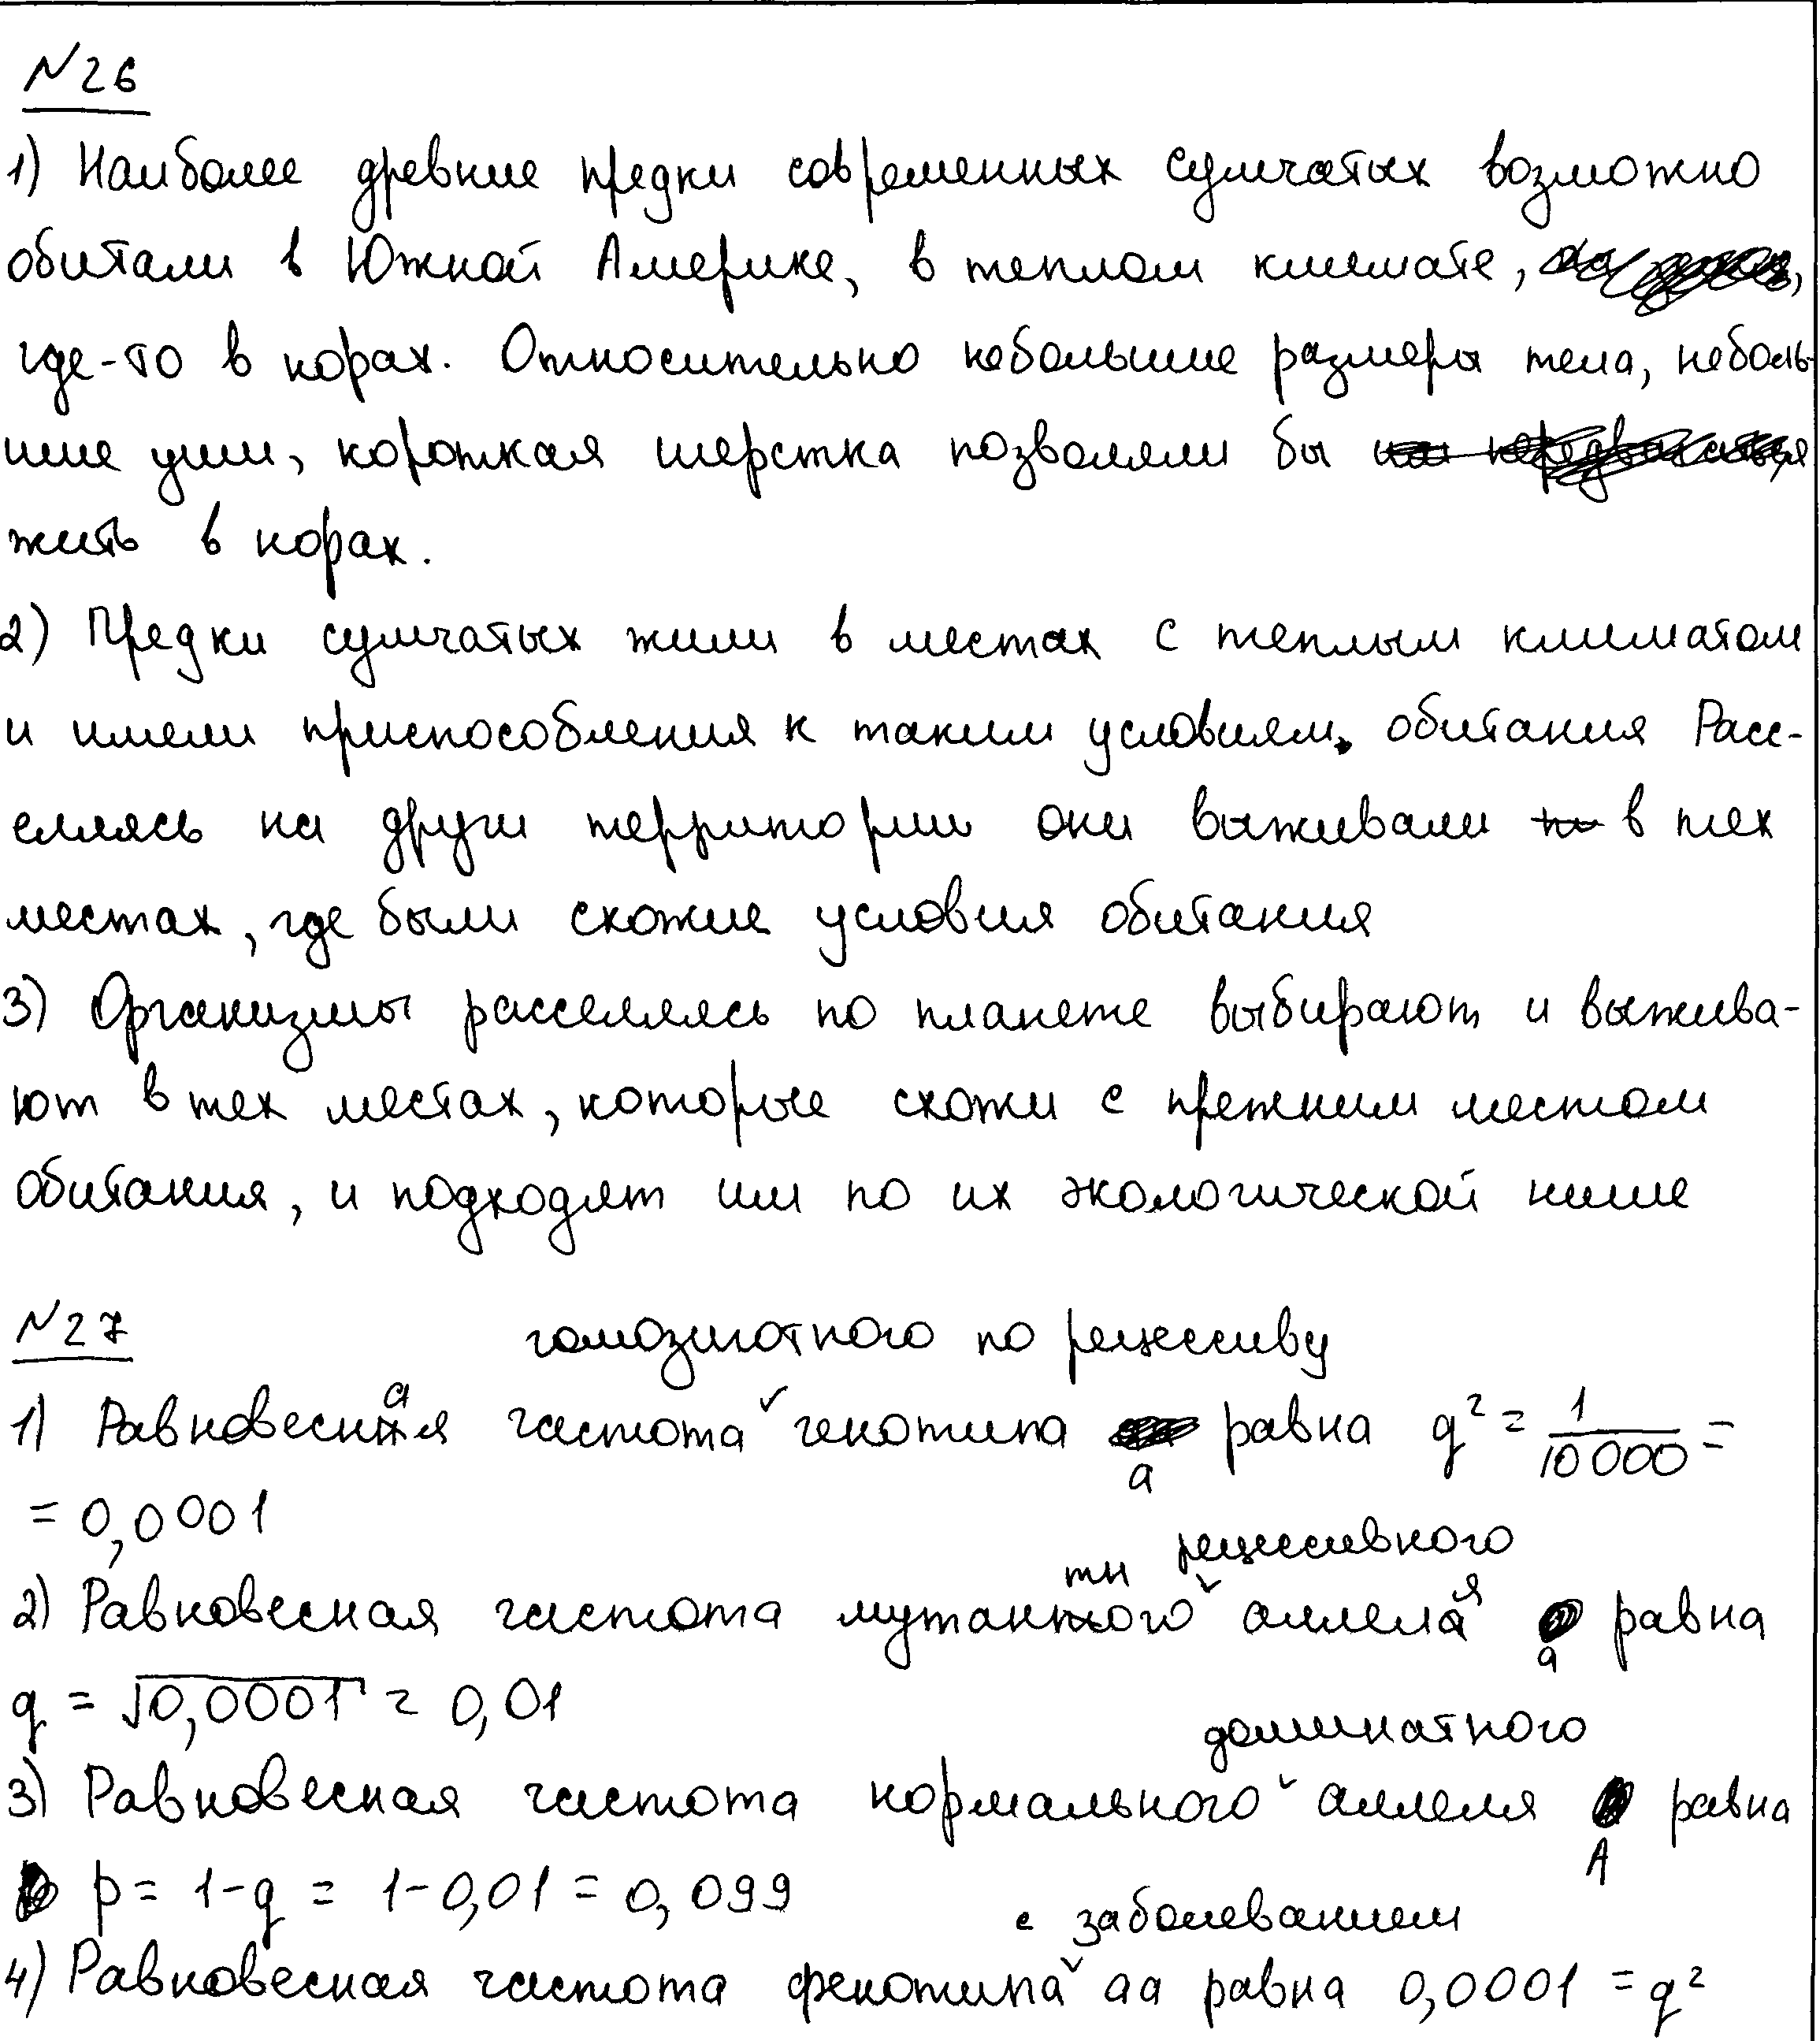 №26
1) Наиболее древние предки современных сумчатых возможно
обитали в Южной Америке, в теплом климате,
где-то в норах. Относительно небольшие размеры тела, неболь-
шие уши, короткая шерстка позволяли бы
жить в норах.
2) Предки сумчатых жили в местах с теплым климатом
и имели приспособления к таким условиям обитания Расс-
еляясь на други территории они выживали в тех
местах, где были схожие условия обитания
3) Организмы расселяясь по планете выбирают и выжива-
ют в тех местах, которые схожи с прежним местом
обитания, и подходят им по их экологической нише
№27
гомозиготного по рецессиву
1) Равновесная частота генотипа равна q² = 1/10000 =
а
= 0,0001
рецессивного
тн
2) Равновесная частота мутантного аллеля равна
а
q = √0,0001 = 0,01
доминатного
3) Равновесная частота нормального аллеля равна
А
p = 1-q = 1-0,01 = 0,099
с заболеванием
4) Равновесная частота фенотипа аа равна 0,0001 = q²